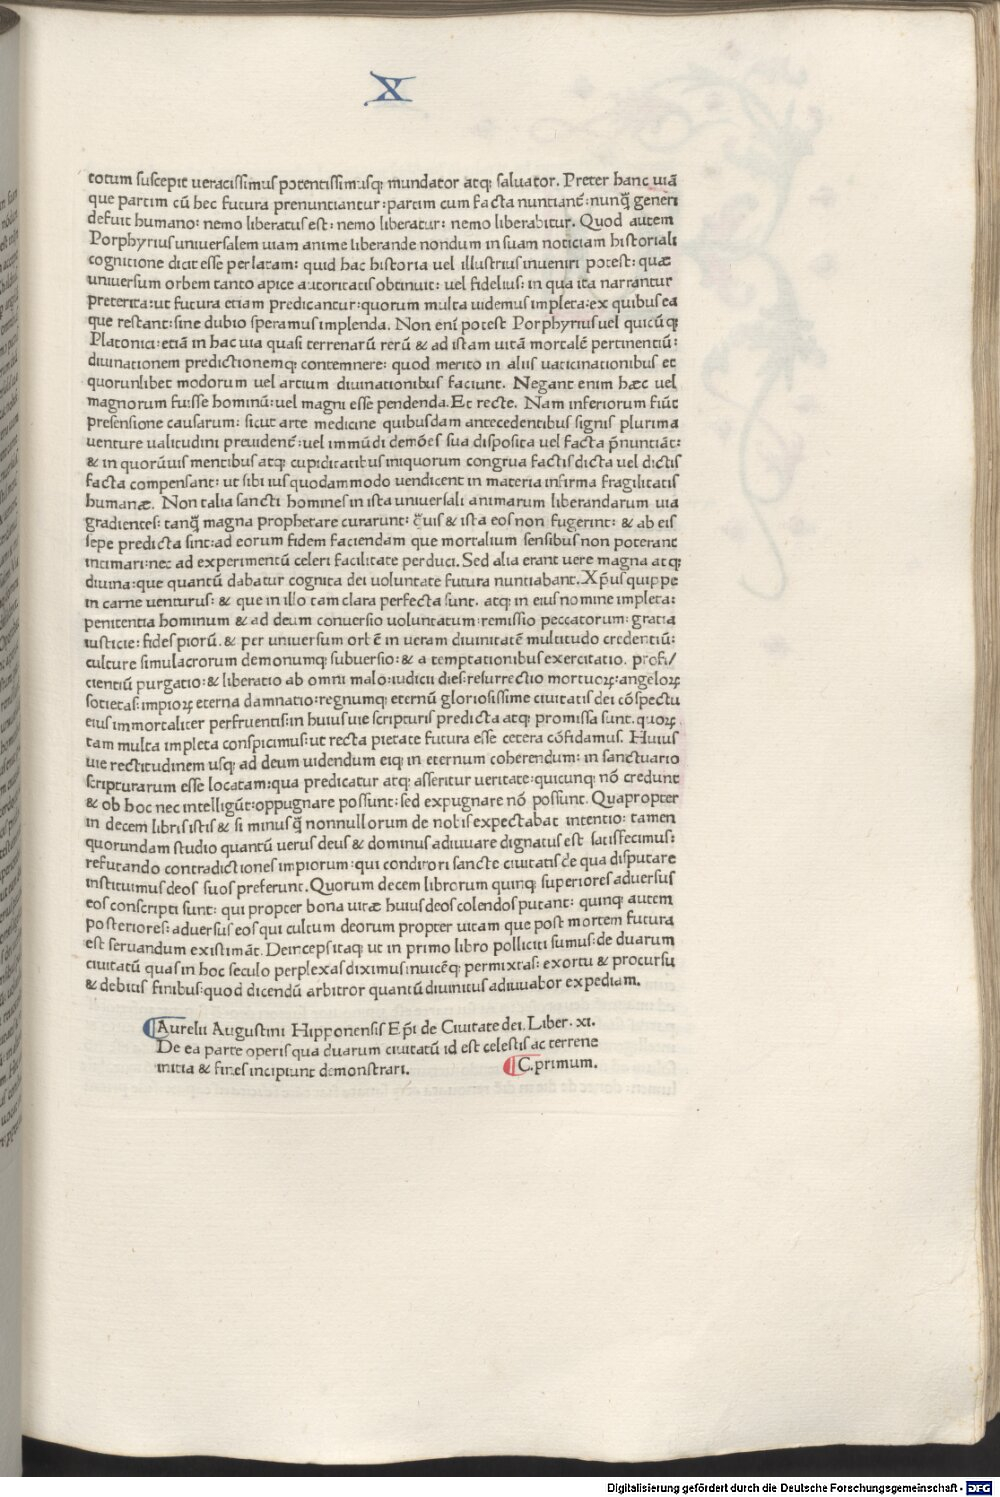 X
totum suscepit ueracissimus potentissimusq; mundator atq; saluator. Preter hanc uiā
que partim cū hec futura prenuntiantur: partim cum facta nuntiant᷑: nunq̄ generi
defuit humano: nemo liberatus est: nemo liberatur: nemo liberabitur. Quod autem
Porphyrius uniuersalem uiam anime liberande nondum in suam noticiam historiali
cognitione dicit esse perlatam: quid hac historia uel illustrius inueniri potest: quæ
uniuersum orbem tanto apice autoritatis obtinuit: uel fidelius: in qua ita narrantur
preterita: ut futura etiam predicantur: quorum multa uidemus impleta: ex quibus ea
que restant: sine dubio speramus implenda. Non eni potest Porphyrius uel quicūq;
Platonici: etiā in hac uia quasi terrenarū rerū & ad istam uitā mortalē pertinentiū:
diuinationem predictionemq; contemnere: quod merito in aliis uaticinationibus et
quorunlibet modorum uel artium diuinationibus faciunt. Negant enim hæc uel
magnorum fuisse hominū: uel magni esse pendenda. Et recte. Nam inferiorum fiūt
presensione causarum: sicut arte medicine quibusdam antecedentibus signis plurima
uenture ualitudini preuident᷑: uel immūdi demōes sua disposita uel facta p̄nuntiāt:
& in quorūuis mentibus atq; cupiditatibus iniquorum congrua factis dicta uel dictis
facta compensant: ut sibi ius quodammodo uendicent in materia infirma fragilitatis
humanæ. Non talia sancti homines in ista uniuersali animarum liberandarum uia
gradientes: tanq̄ magna prophetare curarunt: q̄uis & ista eos non fugerint: & ab eis
sepe predicta sint: ad eorum fidem faciendam que mortalium sensibus non poterant
intimari: nec ad experimentū celeri facilitate perduci. Sed alia erant uere magna atq;
diuina: que quantū dabatur cognita dei uoluntate futura nuntiabant. Xp̄us quippe
in carne uenturus: & que in illo tam clara perfecta sunt. atq; in eius nomine impleta:
penitentia hominum & ad deum conuersio uoluntatum: remissio peccatorum: gratia
iusticie: fides piorū. & per uniuersum orbē in ueram diuinitatē multitudo credentiū:
culture simulacrorum demonumq; subuersio: & a temptationibus exercitatio. profi/
cientiū purgatio: & liberatio ab omni malo: iudicii dies: resurrectio mortuoꝝ: angeloꝝ
societas: impioꝝ eterna damnatio: regnumq; eternū gloriosissime ciuitatis dei cōspectu
eius immortaliter perfruentis: in huius uie scripturis predicta atq; promissa sunt. quoꝝ
tam multa impleta conspicimus: ut recta pietate futura esse cetera cōfidamus. Huius
uie rectitudinem usq; ad deum uidendum eiq; in eternum coherendum: in sanctuario
scripturarum esse locatam: qua predicatur atq; asseritur ueritate: quicunq; nō credunt
& ob hoc nec intelligūt: oppugnare possunt: sed expugnare nō possunt. Quapropter
in decem libris istis & si minus q̄ nonnullorum de nobis expectabat intentio: tamen
quorundam studio quantū uerus deus & dominus adiuuare dignatus est satisfecimus:
refutando contradictiones impiorum: qui conditori sancte ciuitatis de qua disputare
instituimus deos suos preferunt. Quorum decem librorum quinq; superiores aduersus
eos conscripti sunt: qui propter bona uitæ huius deos colendos putant: quinq; autem
posteriores: aduersus eos qui cultum deorum propter uitam que post mortem futura
est seruandum existimāt. Deinceps itaq; ut in primo libro polliciti sumus: de duarum
ciuitatū quas in hoc seculo perplexas diximus: inuicēq; permixtas: exortu & procursu
& debitis finibus: quod dicendū arbitror quantū diuinitus adiuuabor expediam.
¶Aurelii Augustini Hipponensis Ep̄i de Ciuitate dei. Liber. xi.
De ea parte operis qua duarum ciuitatū id est celestis ac terrene
initia & fines incipiunt demonstrari. ¶C. primum.
Digitalisierung gefördert durch die Deutsche Forschungsgemeinschaft - DFG